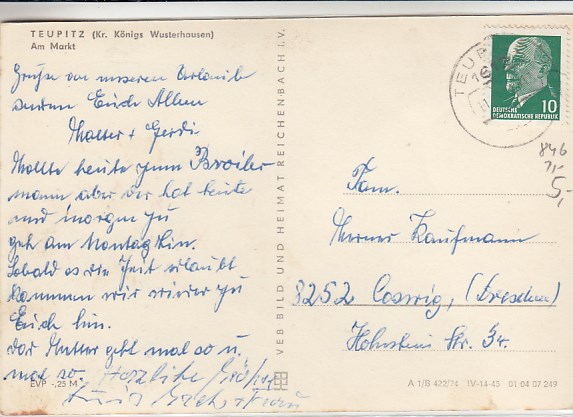 TEUPITZ (Kr. Königs Wusterhausen)
Am Markt
Grüße an unseren Urlaub
senden Euch Allen
Walter + Gerdi
Wollte heute zum Broiler
mann, aber der hat heute
und morgen zu
geh am Montag hin.
Sobald es die Zeit erlaubt
kommen wir wieder zu
Euch hin.
Der Mutter geht mal so u.
mal so. Herzliche Grüße
EVP -,25 M
VEB BILD UND HEIMAT REICHENBACH i. V.
TEUP
16
DEUTSCHE
DEMOKRATISCHE REPUBLIK
10
846
7,-
5,-
Fam.
Werner Kaufmann
8252 Coswig, (Dresden)
Hohnstein Str. 34.
A 1/B 422/74 IV-14-45 01 04 07 249